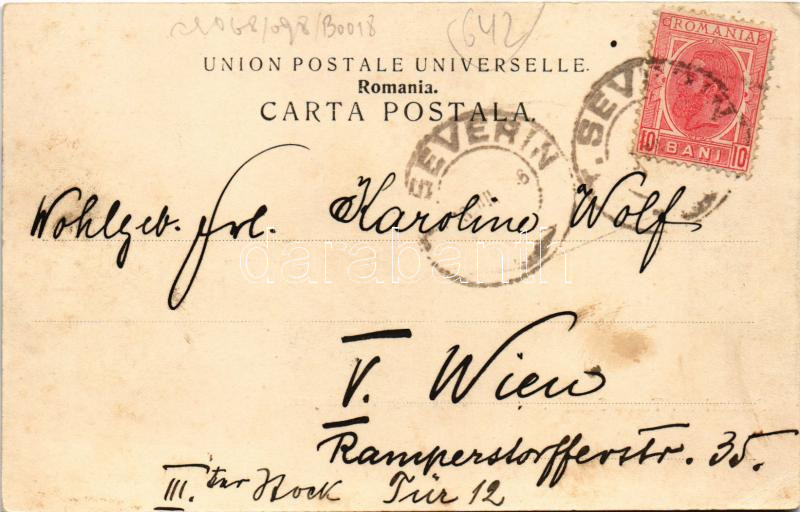 (642)
ROMANIA
UNION POSTALE UNIVERSELLE.
Romania.
CARTA POSTALA.
SEVERIN
T. SEVERIN
10 BANI 10
Wohlgeb. Frl. Karoline Wolf
darabanth
V. Wien
Ramperstorfferstr. 35.
III.ter Stock Tür 12